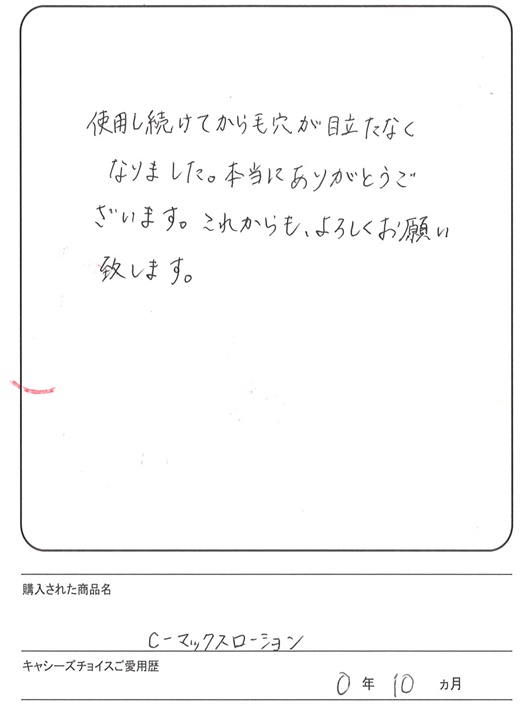 使用し続けてから毛穴が目立たなく
なりました。本当にありがとうご
ざいます。これからも、よろしくお願い
致します。
購入された商品名
C-マックスローション
キャシーズチョイスご愛用歴
0 年 10 ヵ月